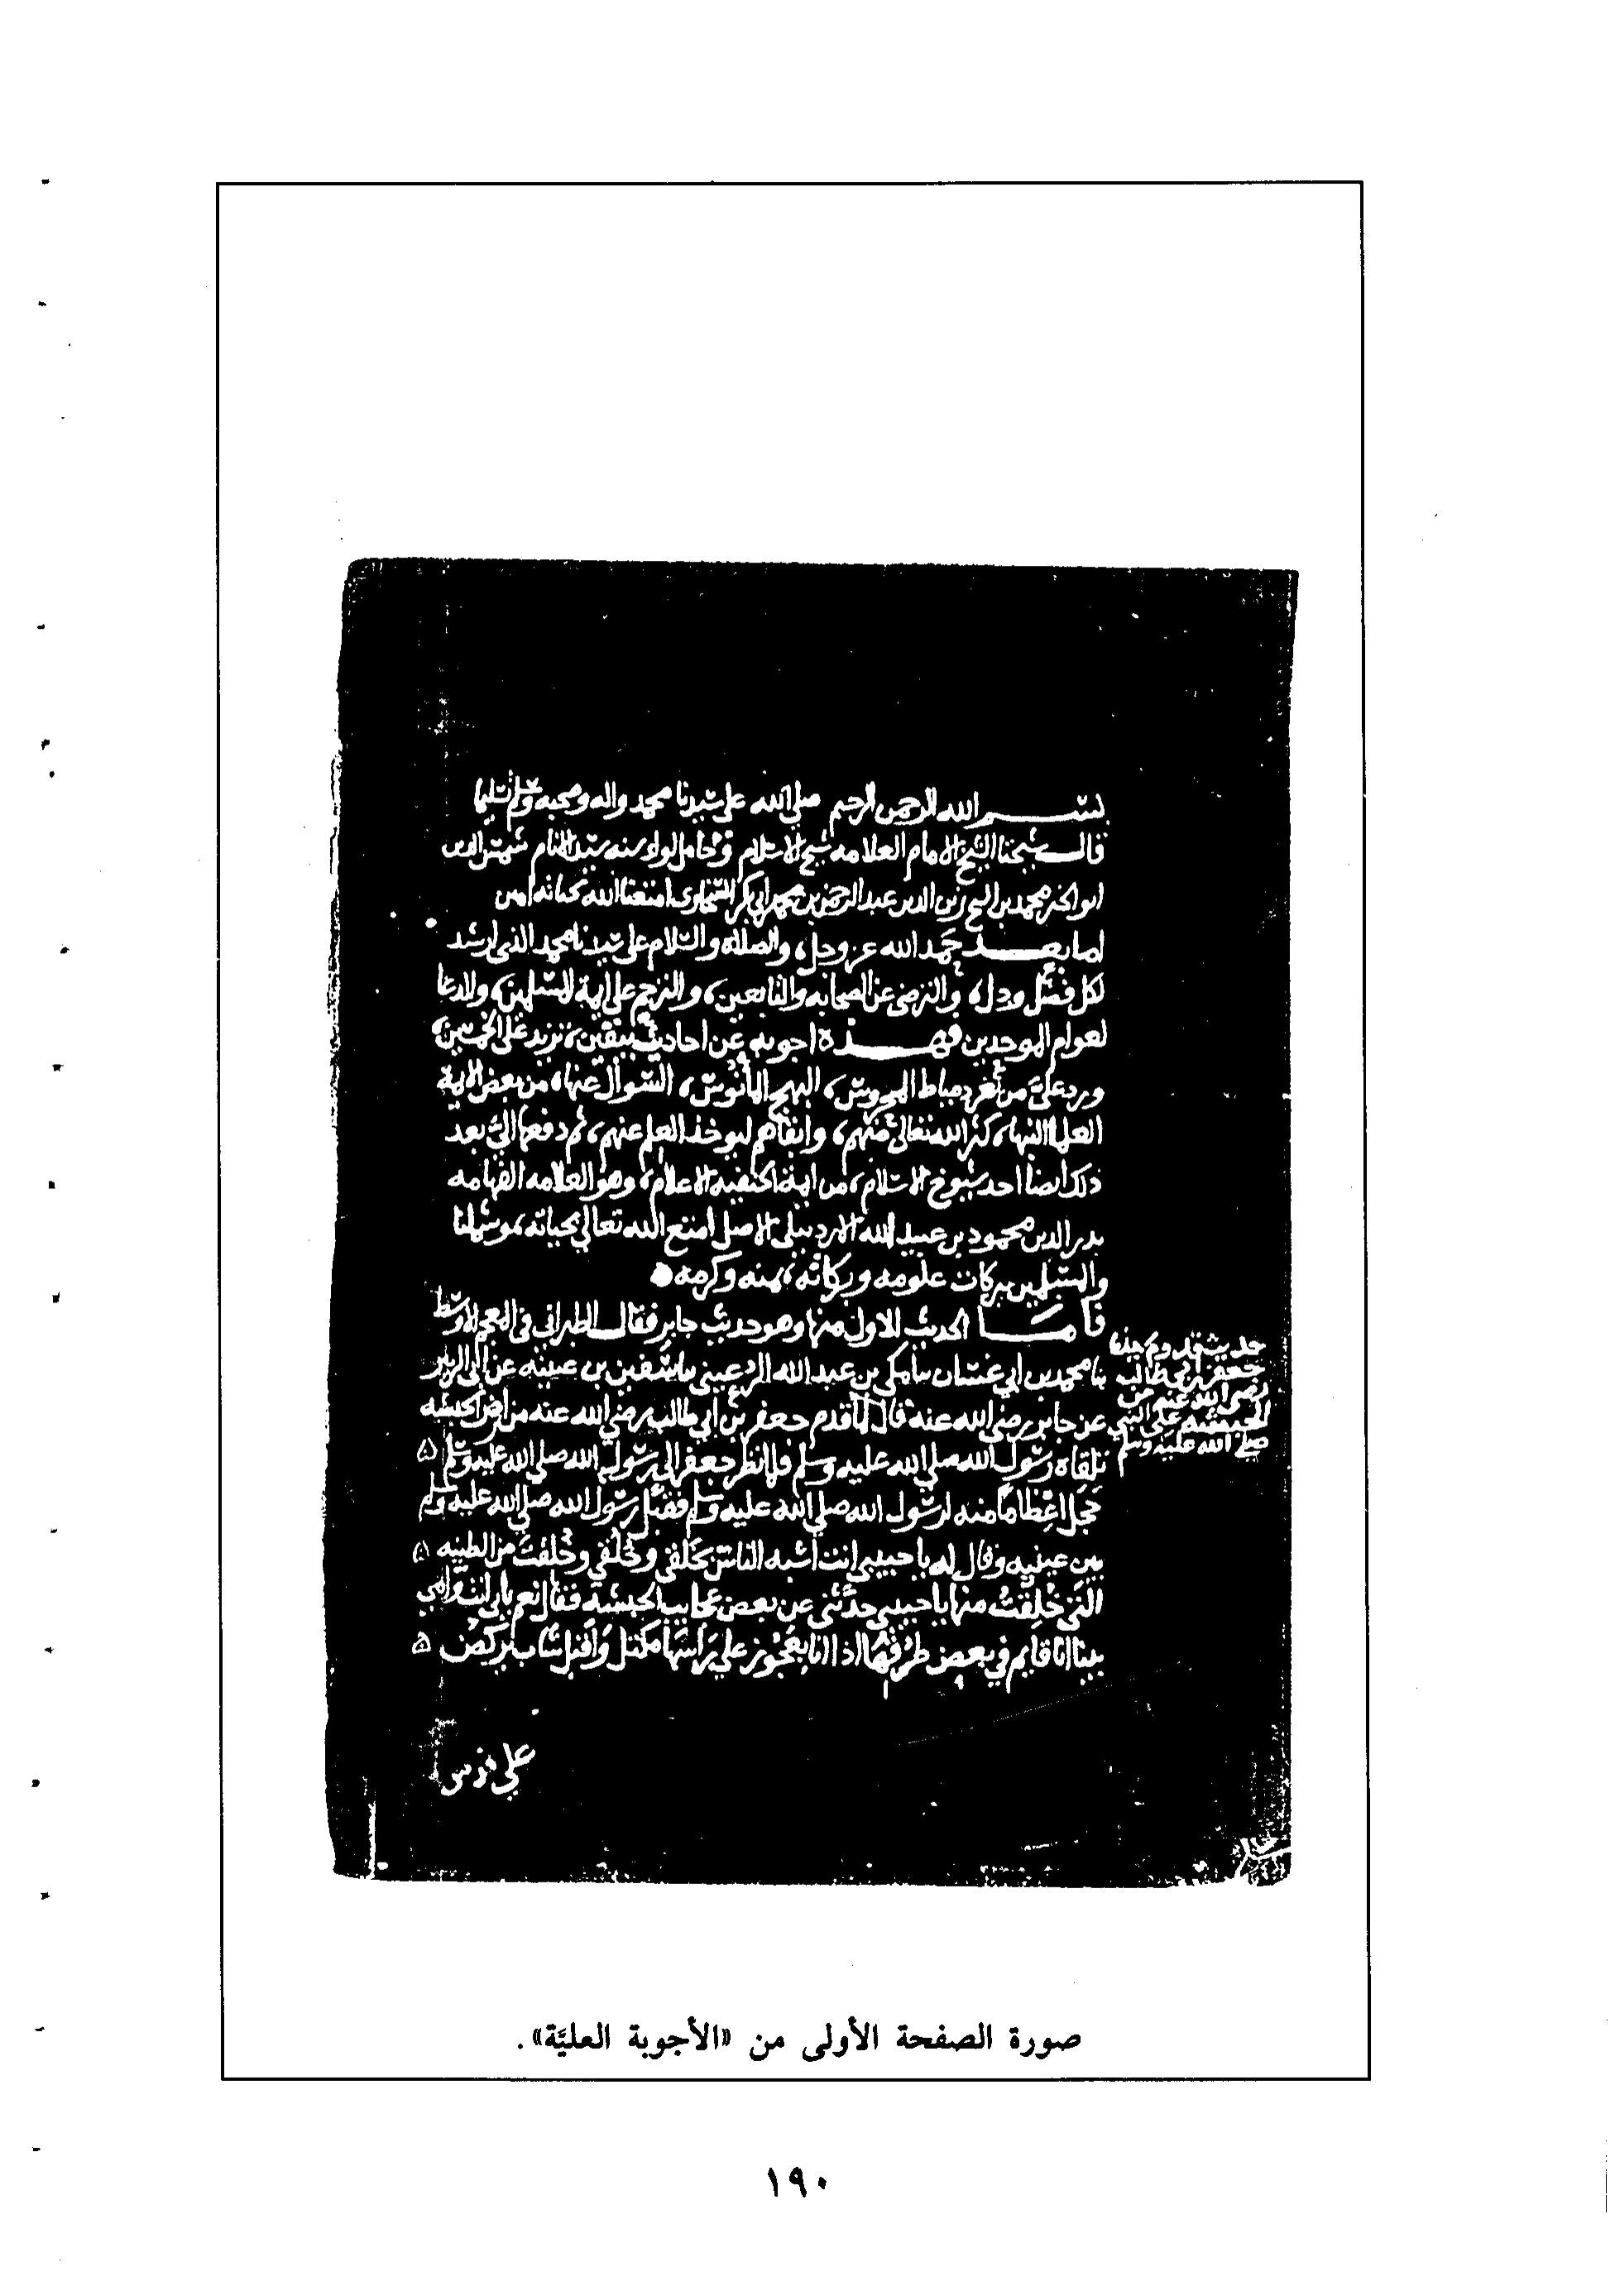 بسم الله الرحمن الرحيم صلى الله على سيدنا محمد واله وصحبه وسلم تسليما
قال شيخنا الشيخ الامام العلامه شيخ الاسلام وحامل لواء سنه سيد الانام شمس الدين
ابو الخير محمد بن الشيخ زين الدين عبد الرحمن بن محمد بن ابي بكر السخاوى امتعنا الله بحياته امين
اما بعد حمد الله عز وجل، والصلاة والسلام على سيدنا محمد الذى ارشد
لكل فضل ودل، والترضى عن الصحابه والتابعين، والترحم على ايمة المسلمين، والدعا
لعوام الموحدين فهذه اجوبه عن احاديث تزيد على الخمسين،
ورد علي من ثغر دمياط المحروس، البهج المانوس، السوال عنها، من بعض الايمة
العلما النبها، كثر الله تعالى منهم، وابقاهم ليوخذ العلم عنهم، ثم دفعها الي بعد
ذلك ايضا احد شيوخ الاسلام، من ايمة الحنفيه الاعلام، وهو العلامه الفهامه
بدر الدين محمود بن عبيد الله الاردبيلى الاصل امتع الله تعالى بحياته، وشملنا
والمسلمين ببركات علومه وبركاته، بمنه وكرمه
فاما الحديث الاول منها وهو حديث جابر فقال الطبراني فى المعجم الاوسط
ثنا محمد بن ابي غسان ثنا مكى بن عبد الله الرعيني ثنا سفين بن عيينه عن ابى الزبير
عن جابر رضي الله عنه قال لما قدم جعفر بن ابي طالب رضي الله عنه من ارض الحبشه
تلقاه رسول الله صلى الله عليه وسلم فلما نظر جعفر الى رسول الله صلى الله عليه وسلم
حجل اعظاما منه لرسول الله صلى الله عليه وسلم فقبل رسول الله صلى الله عليه وسلم
بين عينيه وقال له يا حبيبي انت اشبه الناس بخلقي وخُلُقي وخلقت من الطينه
التى خلقت منها يا حبيبي حدثني عن بعض عجايب الحبشه فقال نعم بابي انت وامي
بينا انا قايم في بعض طرقها اذا انا بعجوز على راسها مكتل واقبل شاب يركض
حديث قدوم جعفر
بن ابي طالب
رضي الله عنه من
الحبشه على النبي
صلى الله عليه وسلم
على فرس
صورة الصفحة الأولى من «الأجوبة العليَّة».
١٩٠